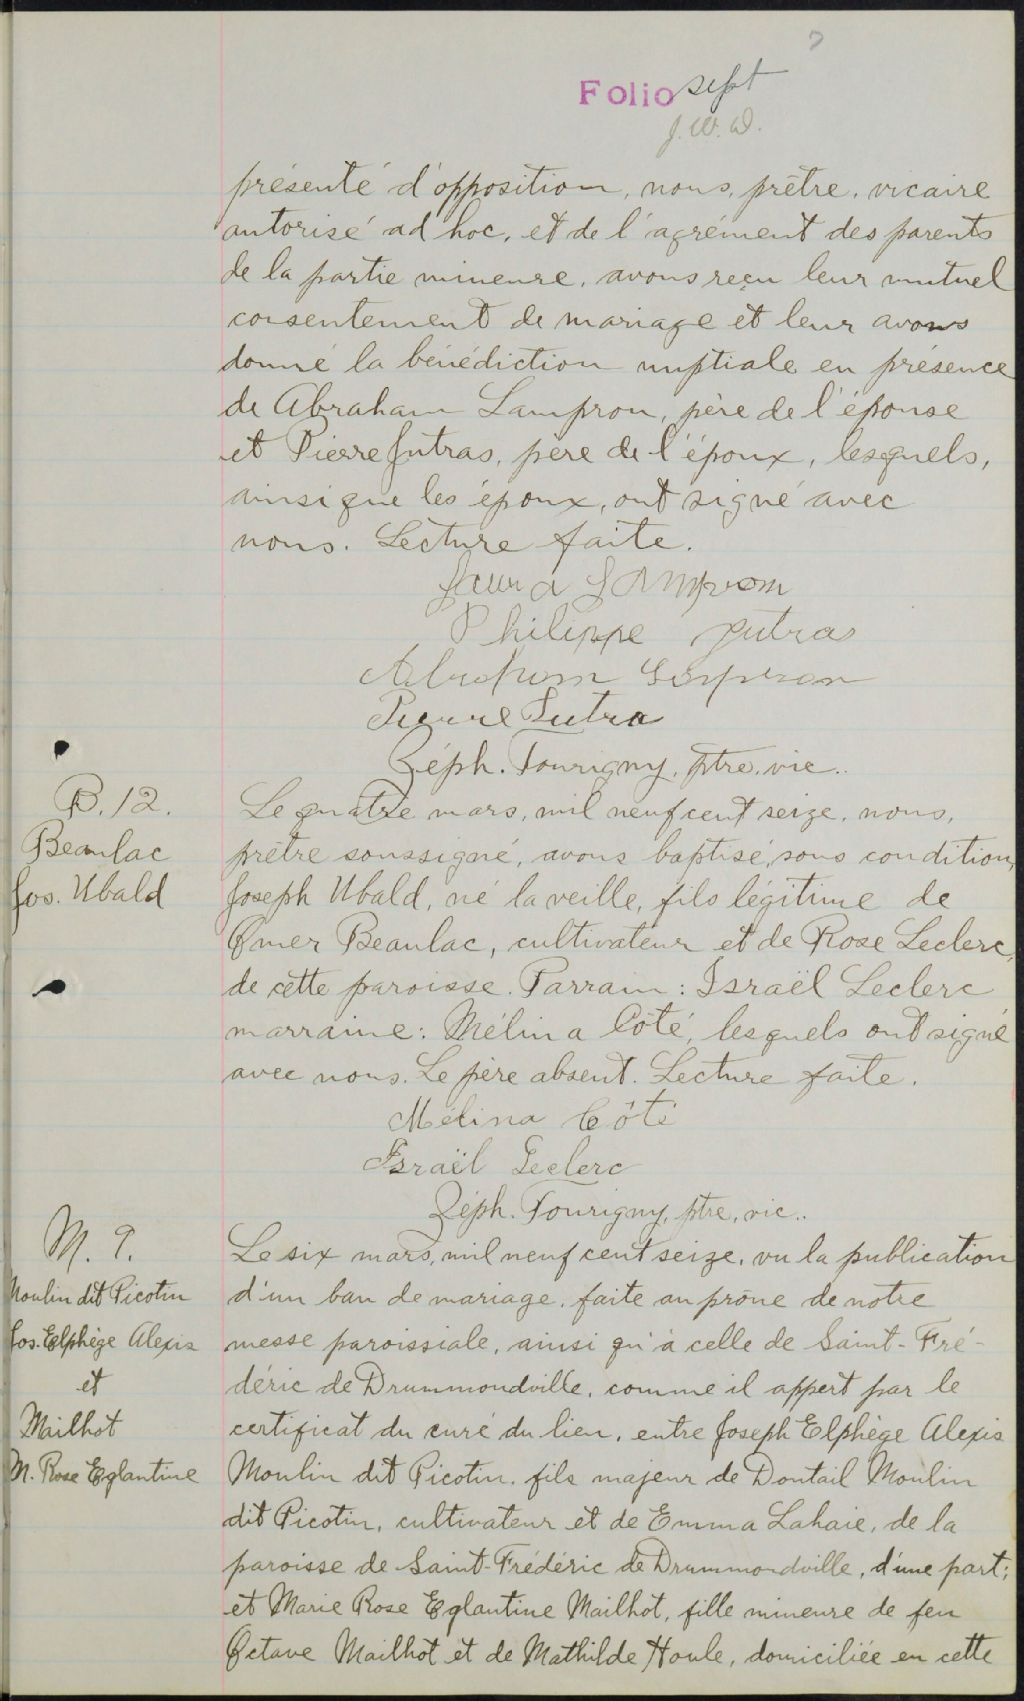 7
Folio sept
J. W. D.
présenté d'opposition, nous, prêtre, vicaire
autorisé ad hoc, et de l'agrément des parents
de la partie mineure, avons reçu leur mutuel
consentement de mariage et leur avons
donné la bénédiction nuptiale en présence
de Abraham Lampron, père de l'épouse
et Pierre Jutras, père de l'époux, lesquels,
ainsi que les époux, ont signé avec
nous. Lecture faite.
Laura Lampron
Philippe Jutras
Abraham Lampron
Pierre Jutra
Zéph. Tourigny, ptre, vic..
B. 12.
Beaulac
Jos. Ubald
Le quatre mars, mil neuf cent seize, nous,
prêtre soussigné, avons baptisé, sous condition,
Joseph Ubald, né la veille, fils légitime de
Omer Beaulac, cultivateur et de Rose Leclerc,
de cette paroisse. Parrain: Israël Leclerc
marraine: Mélina Côté, lesquels ont signé
avec nous. Le père absent. Lecture faite.
Mélina Côté
Israël Leclerc
Zéph. Tourigny, ptre, vic..
M. 9.
Moulin dit Picotin
Jos. Elphège Alexis
et
Mailhot
M. Rose Eglantine
Le six mars, mil neuf cent seize, vu la publication
d'un ban de mariage, faite au prône de notre
messe paroissiale, ainsi qu'à celle de Saint-Fré-
déric de Drummondville, comme il appert par le
certificat du curé du lieu, entre Joseph Elphège Alexis
Moulin dit Picotin, fils majeur de Moulin
dit Picotin, cultivateur et de Emma Lahaie, de la
paroisse de Saint-Frédéric de Drummondville, d'une part;
et Marie Rose Eglantine Mailhot, fille mineure de feu
Octave Mailhot et de Mathilde Houle, domiciliée en cette